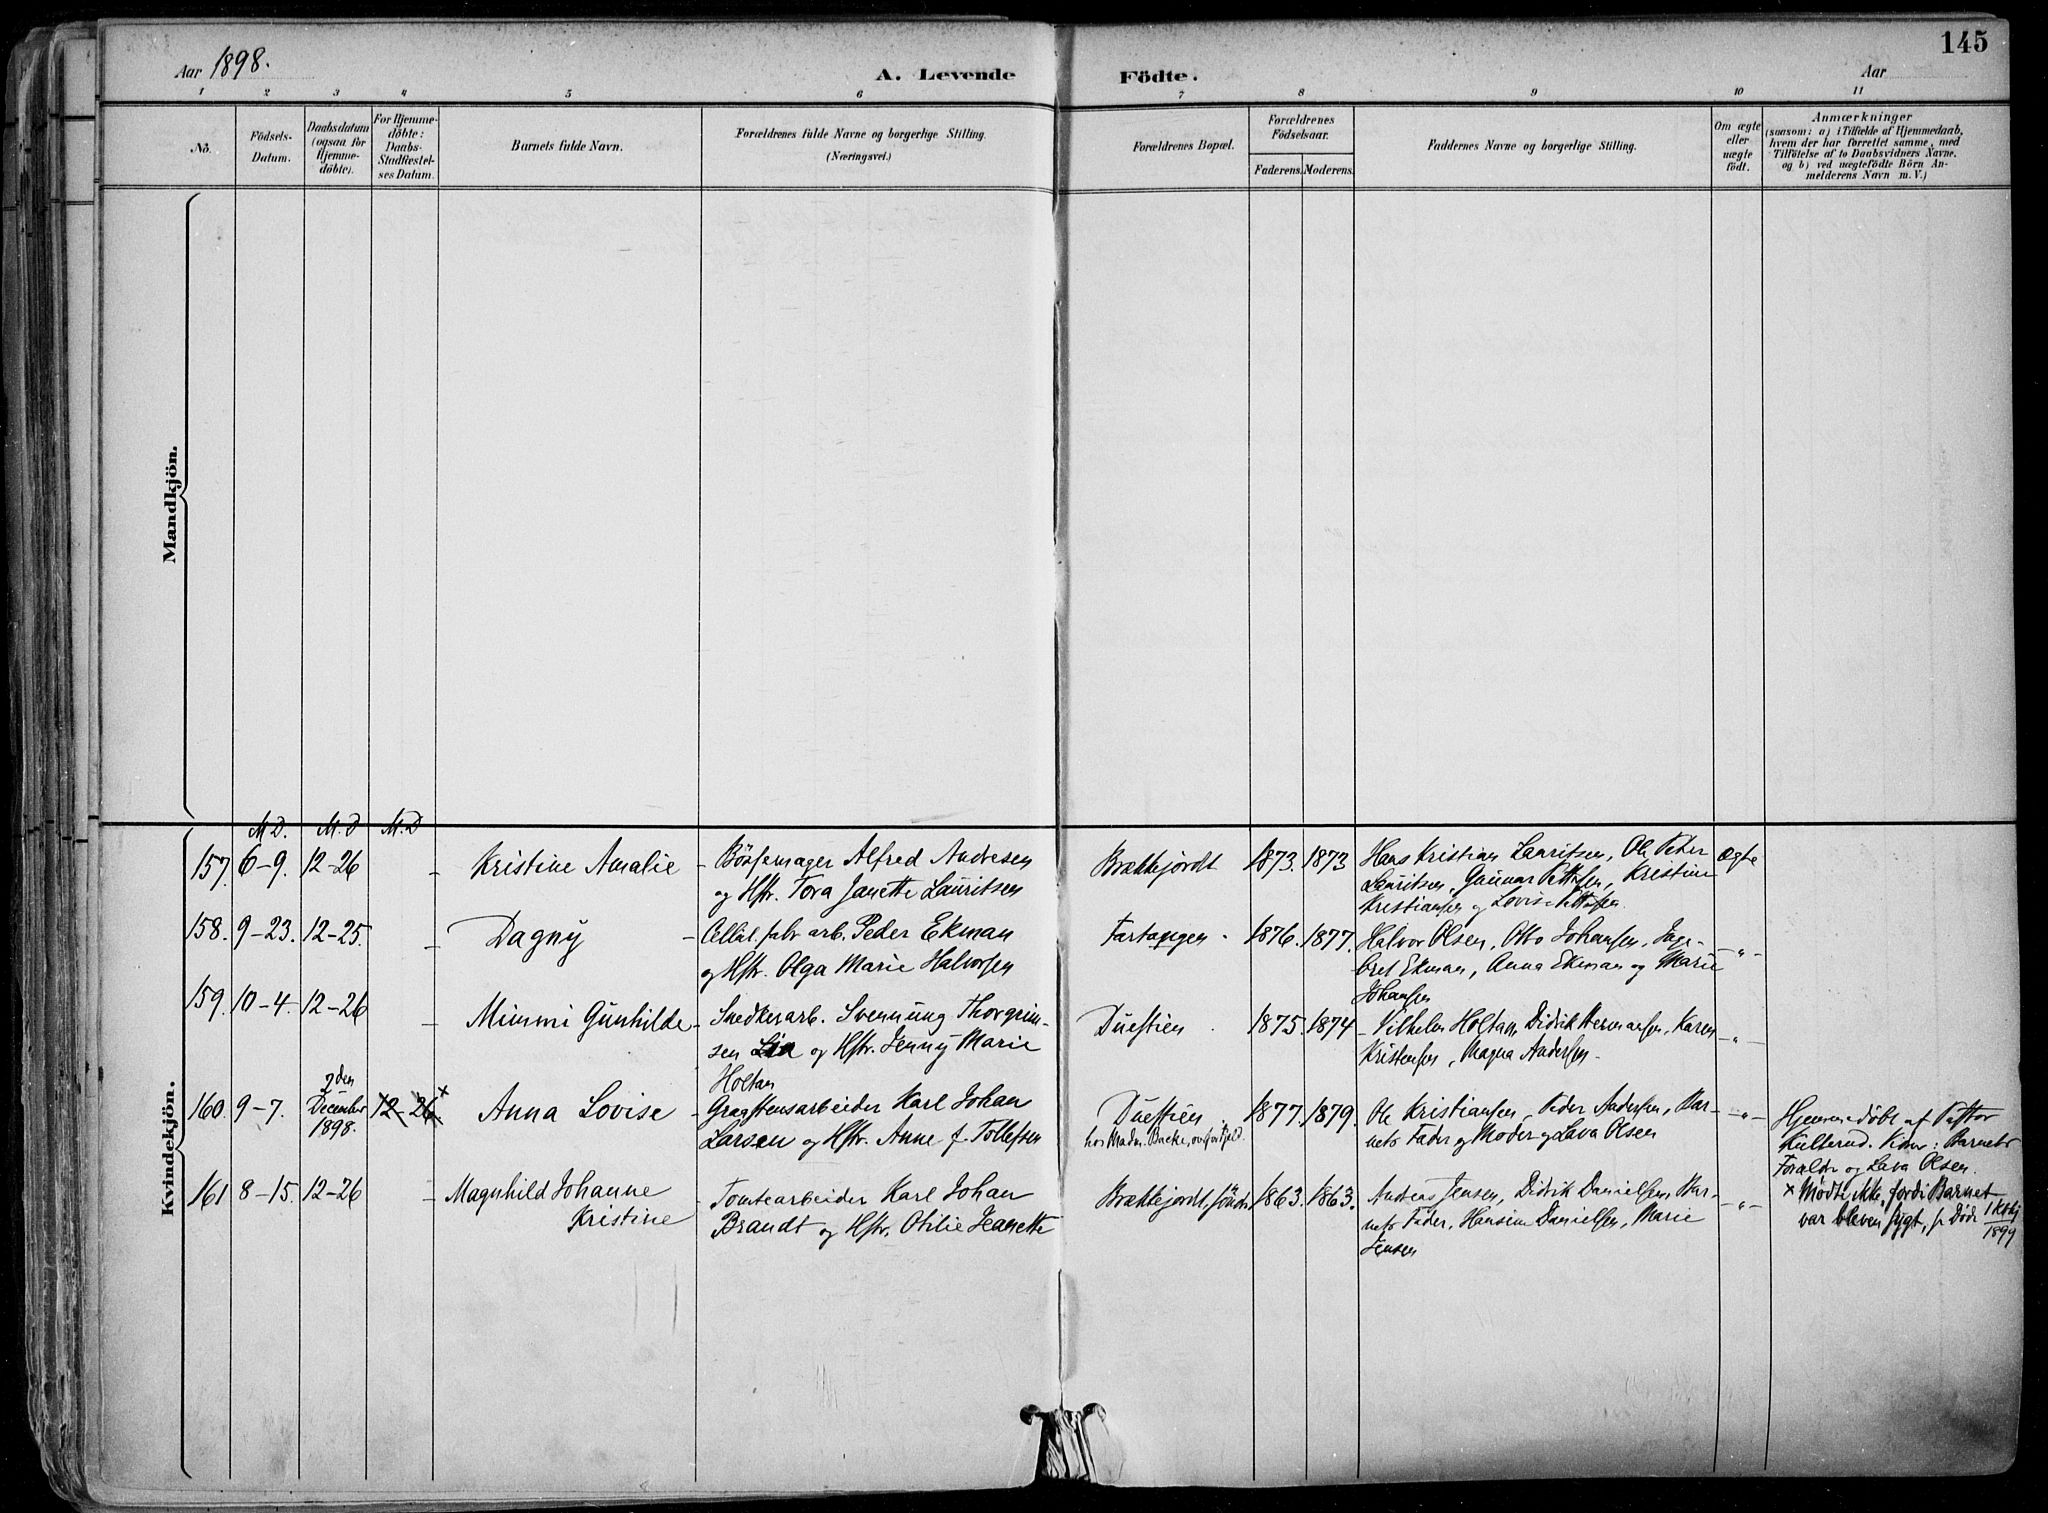 145
Aar 1898.
A. Levende
Födte.
Aar
1 2 3 4 5 6 7 8 9 10 11
No.
Födsels-
Datum.
Daabsdatum
(ogsaa for
Hjemme-
döbte).
For Hjemme-
döbte:
Daabs-
Stadfæstel-
ses Datum.
Barnets fulde Navn.
Forældrenes fulde Navne og borgerlige Stilling.
(Næringsvei.)
Forældrenes Bopæl.
Forældrenes
Födselsaar.
Faderens. Moderens.
Faddernes Navne og borgerlige Stilling.
Om ægte
eller
uægte
födt.
Anmærkninger
(saasom: a) i Tilfælde af Hjemmedaab,
hvem der har forrettet samme, med
Tilföielse af to Daabsvidners Navne,
og b) ved uægtefödte Börn An-
melderens Navn m. V.)
Mandkjön.
Kvindekjön.
M D. M. D M. D
157. 6-9. 12-26 - Kristine Amalie -
Bösfermager Alfred Andresen
og Hstr. Tora Janette Lauritsen
Brækkejordt 1873. 1873
Hans Kristian Lauritsen, Ole Peter
Lauritsen, Gunnar, Kristine
Kristiansen og Lovise
Ægte
158. 9-23. 12-25. - Dagny -
Cellul. fabr arb. Peder Ekman
og Hstr. Olga Marie Halvorsen
Fartangen - 1876. 1877.
Halvor Olsen, Otto Johansen, Inge-
bret Ekman, Anna Ekman og Marie
Johansen
-"-
159. 10-4. 12-26 - Mimmi Gunhilde -
Snedkerarb. Svennung Thorgrim-
sen Lia og Hstr. Jenny Marie
Holtan
Duestien . 1875. 1874
Vilhelm Holtan, Didrik Hermansen, Karen
Kristensen, Magna Andersen.
-"-
160. 9-7. 2den
December
1898. 12-26 x Anna Lovise -
Gragstensarbeider Karl Johan
Larsen og Hstr. Anne f. Tollefsen
Duestien
hos Madm. Bakke,
1877. 1879.
Ole Kristiansen, Peder Andersen, Bar-
nets Fader og Moder og Lava Olsen
-"-
Hjemmedöbt af Pastor
Kulterud. Vidner: Barnets
Forældre og Lava Olsen.
x Mödte ikke, fordi Barnet
var bleven sygt,
1899
161 8-15. 12-26 - Magnhild Johanne
Kristine
- Tomtearbeider Karl Johan
Brandt og Hstr. Otilie Jeanette
Brækkejordt, söndre 1863. 1863.
Andreas Jensen, Didrik Danielsen, Bar-
nets Fader, Hansine Danielsen, Marie
Jensen
-"-